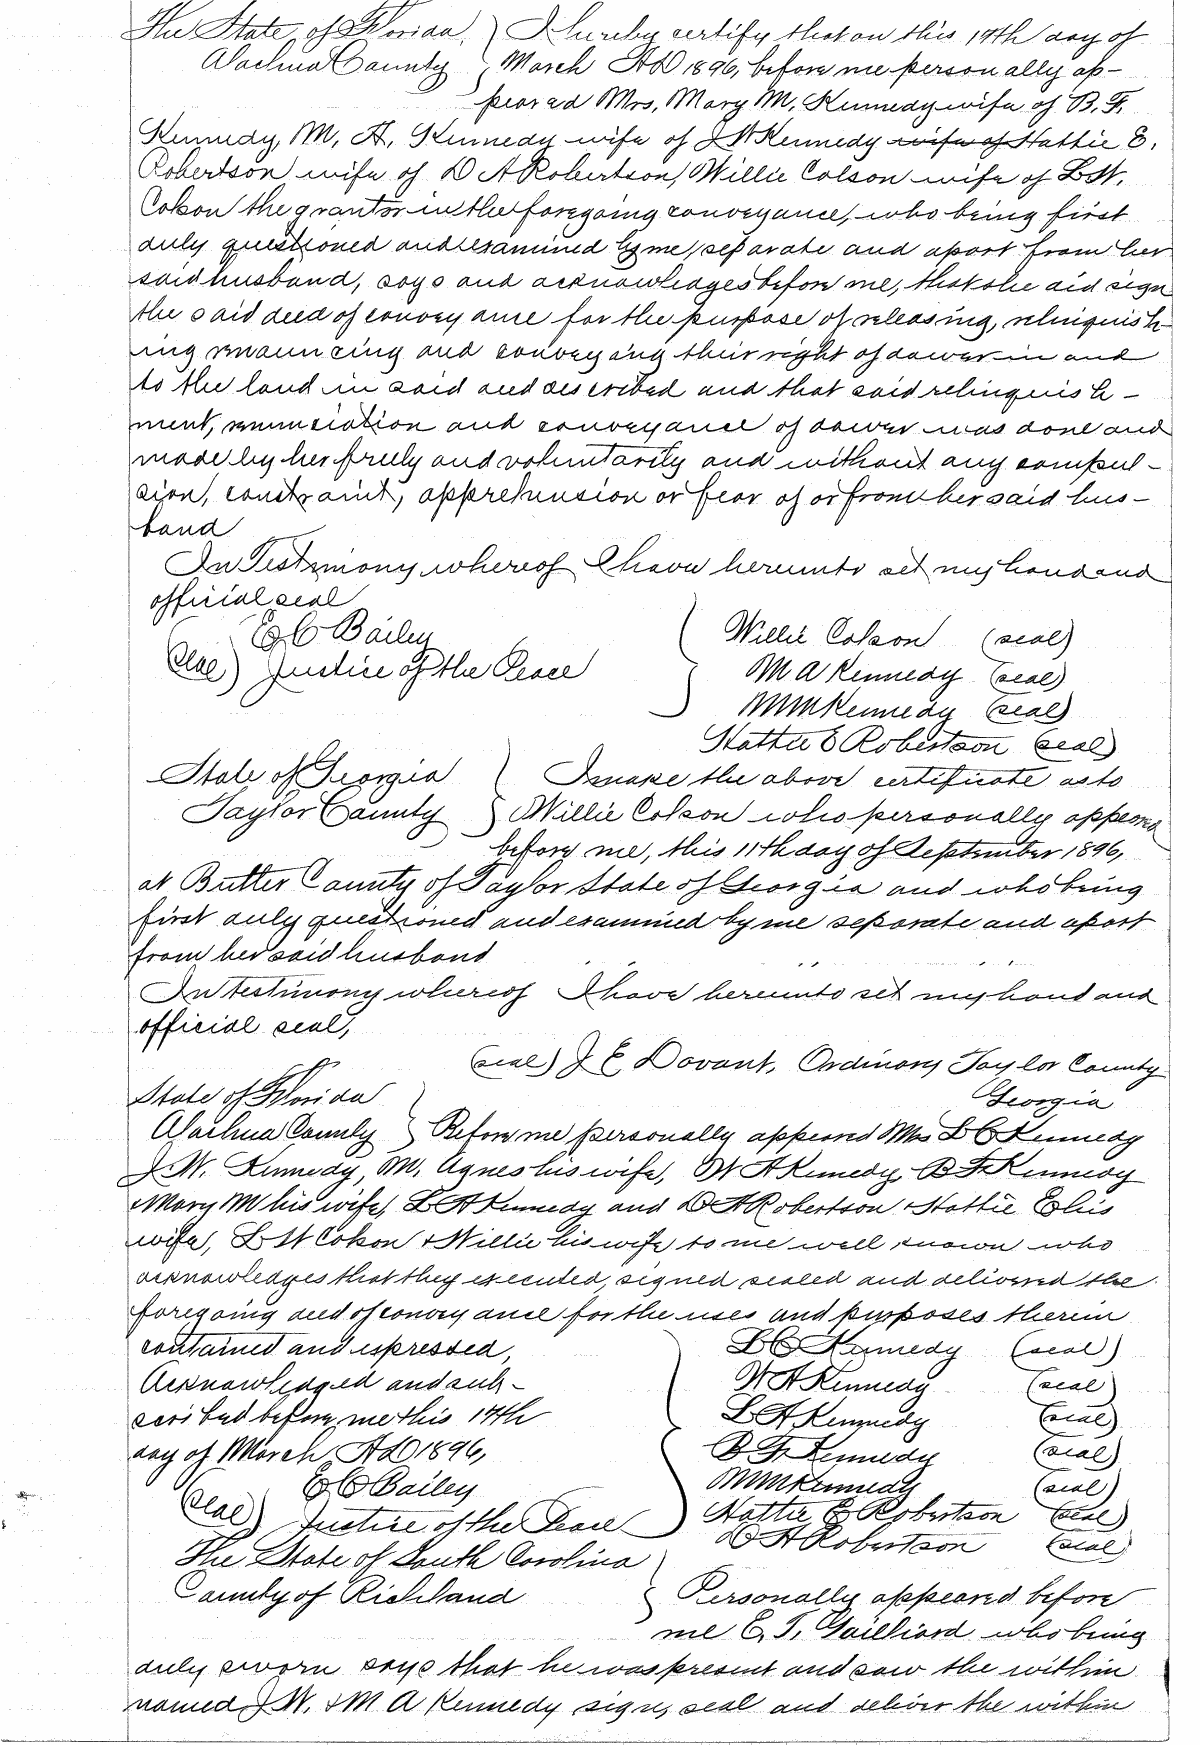 The State of Florida, ) I hereby certify that on this 17th day of
Alachua County ) March AD 1896, before me personally ap-
peared Mrs, Mary M, Kennedy wife of B. F.
Kennedy, M, A, Kennedy wife of J W Kennedy wife of Hattie E,
Robertson wife of D A Robertson, Willie Colson wife of L W,
Colson the grantor in the foregoing conveyance, who being first
duly questioned and examined by me, separate and apart from her
said husband, says and acknowledges before me, that she did sign
the said deed of conveyance for the purpose of releasing, relinquish-
ing renouncing and conveying their right of dower in and
to the land in said deed described and that said relinquish-
ment, renunciation and conveyance of dower was done and
made by her freely and voluntarily and without any compul-
sion, constraint, apprehension or fear of or from her said hus-
band
In Testimony whereof I have hereunto set my hand and
official seal
E C Bailey ( Willie Colson (seal)
(Seal) Justice of the Peace ) M A Kennedy (seal)
M M Kennedy (seal)
Hattie E Robertson (seal)
State of Georgia ( I make the above certificate as to
Taylor County ) Willie Colson who personally appeared
before me, this 11th day of September 1896,
at Butler County of Taylor State of Georgia and who being
first duly questioned and examined by me separate and apart
from her said husband
In testimony whereof I have hereunto set my hand and
official seal,
(seal) J E Dovant, Ordinary Taylor County
State of Florida Georgia
Alachua County ) Before me personally appeared Mrs L C Kennedy
J. W. Kennedy, M. Agnes his wife, W A Kennedy B F Kennedy
Mary M his wife, L A Kennedy and D A Robertson Hattie E his
wife, L W Colson & Willie his wife to me well known who
acknowledges that they executed, signed sealed and delivered the
foregoing deed of conveyance for the uses and purposes therein
contained and expressed, L C Kennedy (seal)
Acknowledged and sub- W A Kennedy (seal)
scribed before me this 17th L A Kennedy (seal)
day of March AD 1896, B F Kennedy (seal)
E C Bailey M M Kennedy (seal)
(Seal) Justice of the Peace Hattie E Robertson (seal)
D A Robertson (seal)
The State of South Carolina )
County of Richland ) Personally appeared before
me E, T, Gailliard who being
duly sworn says that he was present and saw the within
named J W. & M A Kennedy sign, seal and deliver the within